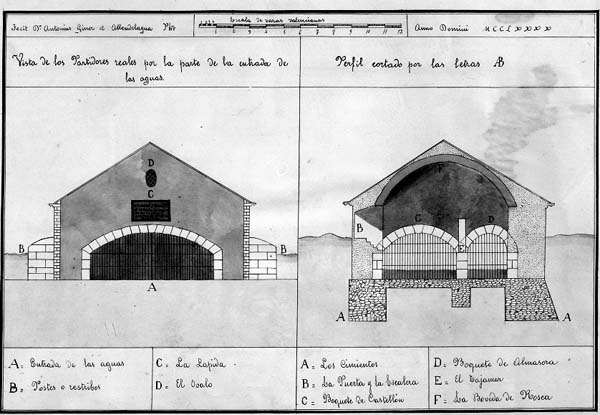 Fecit Dⁿ Antonius Giner et Allendelagua
Escala de varas valencianas
1 2 3 4 5 6 7 8 9 10 11 12
Anno Domini MCCLXXXXX
Vista de los Partidores reales por la parte de la entrada de
las aguas.
Perfil cortado por las letras AB
D
C
B
B
A
F
B
C
D
E
A
A
A = Entrada de las aguas
B = Postes o restribos
C = La Lapida
D = El Ovalo
A = Los Cimientos
B = La Puerta y la Escalera
C = Boquete de Castellón
D = Boquete de Almasora
E = El Cajamar
F = La Bovida de Rosca